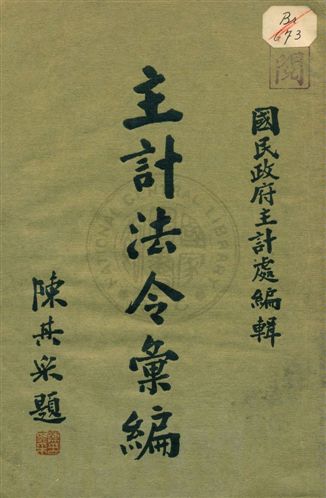 國民政府主計處編輯
主計法令彙編
陳其采題
Br
673
閱
NATIONAL CENTRAL LIBRARY